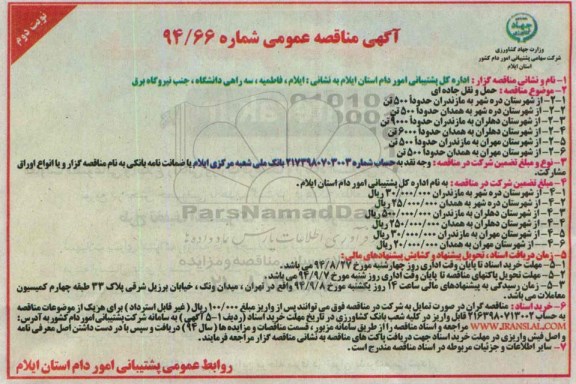 نوبت دوم
جهاد کشاورزی
وزارت جهاد کشاورزی
شرکت سهامی پشتیبانی امور دام کشور
استان ایلام
آگهی مناقصه عمومی شماره ۹۴/۶۶
۱- نام و نشانی مناقصه گزار : اداره کل پشتیبانی امور دام استان ایلام به نشانی : ایلام ، فاطمیه ، سه راهی دانشگاه ، جنب نیروگاه برق
۲- موضوع مناقصه : حمل و نقل جاده ای
۱-۲- از شهرستان دره شهر به مازندران حدوداً ۵۰۰ تن
۲-۲- از شهرستان دره شهر به همدان حدوداً ۵۰۰ تن
۳-۲- از شهرستان دهلران به مازندران حدوداً ۹۰۰۰ تن
۴-۲- از شهرستان دهلران به همدان حدوداً ۶۰۰۰ تن
۵-۲- از شهرستان مهران به مازندران حدوداً ۵۰۰ تن
۶-۲- از شهرستان مهران به همدان حدوداً ۵۰۰ تن
۳- نوع و مبلغ تضمین شرکت در مناقصه : وجه نقد به حساب شماره ۲۱۷۳۹۸۰۷۰۳۰۰۳ بانک ملی شعبه مرکزی ایلام یا ضمانت نامه بانکی به نام مناقصه گزار و یا انواع اوراق
مشارکت.
۴- مبلغ تضمین شرکت در مناقصه : به نام اداره کل پشتیبانی امور دام استان ایلام .
۱-۴- از شهرستان دره شهر به مازندران ۳۰/۰۰۰/۰۰۰ ریال
۲-۴- از شهرستان دره شهر به همدان ۲۵/۰۰۰/۰۰۰ ریال
۳-۴- از شهرستان دهلران به مازندران ۵۰۰/۰۰۰/۰۰۰ ریال
۴-۴- از شهرستان دهلران به همدان ۲۵۰/۰۰۰/۰۰۰ ریال
۵-۴- از شهرستان مهران به مازندران ۳۰/۰۰۰/۰۰۰ ریال
۶-۴- از شهرستان مهران به همدان ۲۰/۰۰۰/۰۰۰ ریال
۵- زمان دریافت اسناد ، تحویل پیشنهاد و گشایش پیشنهادهای مالی:
۱-۵- مهلت خرید اسناد تا پایان وقت اداری روز چهارشنبه مورخ ۹۴/۸/۲۷ می باشد.
۲-۵- مهلت تحویل پاکتهای مناقصه تا پایان وقت اداری روز شنبه مورخ ۹۴/۹/۷ می باشد.
۳-۵- زمان رسیدگی به پیشنهادهای مالی ساعت ۱۴ روز یکشنبه مورخ ۹۴/۹/۸ واقع در تهران ، میدان ونک ، خیابان برزیل شرقی پلاک ۳۳ طبقه چهارم کمیسیون
معاملات می باشد.
۶- خرید اسناد : مناقصه گران در صورت تمایل به شرکت در مناقصه فوق می توانند پس از واریز مبلغ ۱۰۰/۰۰۰ ریال ( غیر قابل استرداد ) برای هریک از موضوعات مناقصه
به حساب ۲۱۶۳۹۸۰۷۱۳۰۰۲ قابل واریز در کلیه شعب بانک کشاورزی در تاریخ مهلت خرید اسناد (ردیف ۱-۵ آگهی ) به سامانه شرکت پشتیبانی امور دام کشور به آدرس :
WWW.IRANSLAL.COM مراجعه و اسناد مناقصه را از طریق سامانه مزبور ، قسمت مناقصات و مزایده ها ( سال ۹۴ ) دریافت و سپس با در دست داشتن اصل معرفی نامه
و اصل فیش واریزی در مهلت خرید اسناد جهت دریافت پاکت های مناقصه به نشانی مناقصه گزار مراجعه فرمایند.
۷- سایر اطلاعات و جزئیات مربوطه در اسناد مناقصه مندرج است.
روابط عمومی پشتیبانی امور دام استان ایلام
ParsNamadData